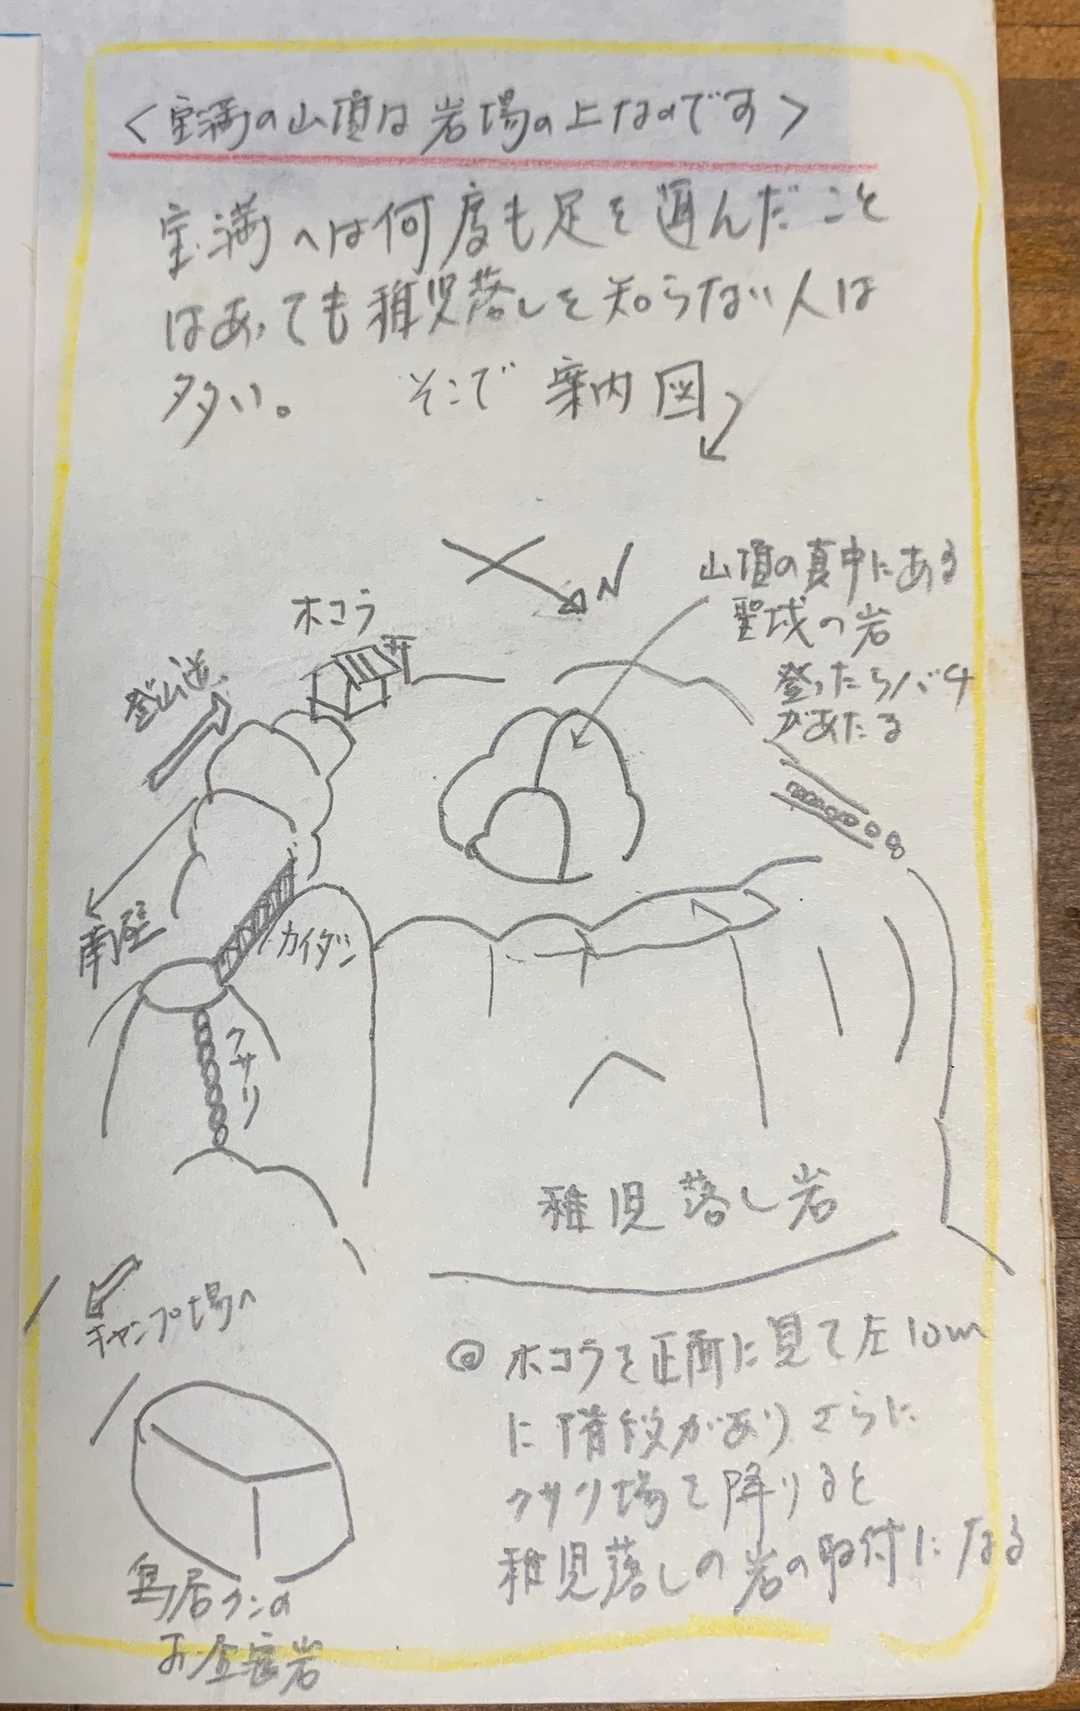 <宝満の山頂は岩場の上なのです>
宝満へは何度も足を運んだこと
はあっても稚児落しを知らない人は
多い。 そこで 案内図
N
山頂の真中にある
聖域の岩
登ったらバチ
があたる
ホコラ
登山道
南壁
カイダン
クサリ
稚児落し岩
キャンプ場へ
◎ ホコラを正面に見て左10m
に階段がありさらに
クサリ場を降りると
稚児落しの岩の取付になる
鳥居クンの
お昼寝岩